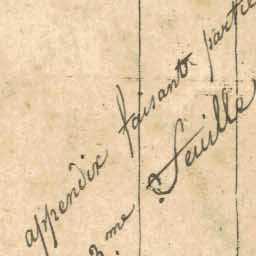 appendix faisant partie
3.me Feuille